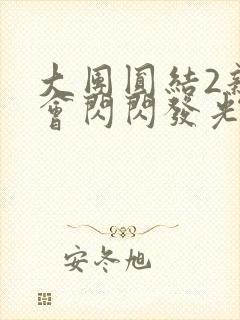 大團圓結2新
會閃閃發光
安冬旭